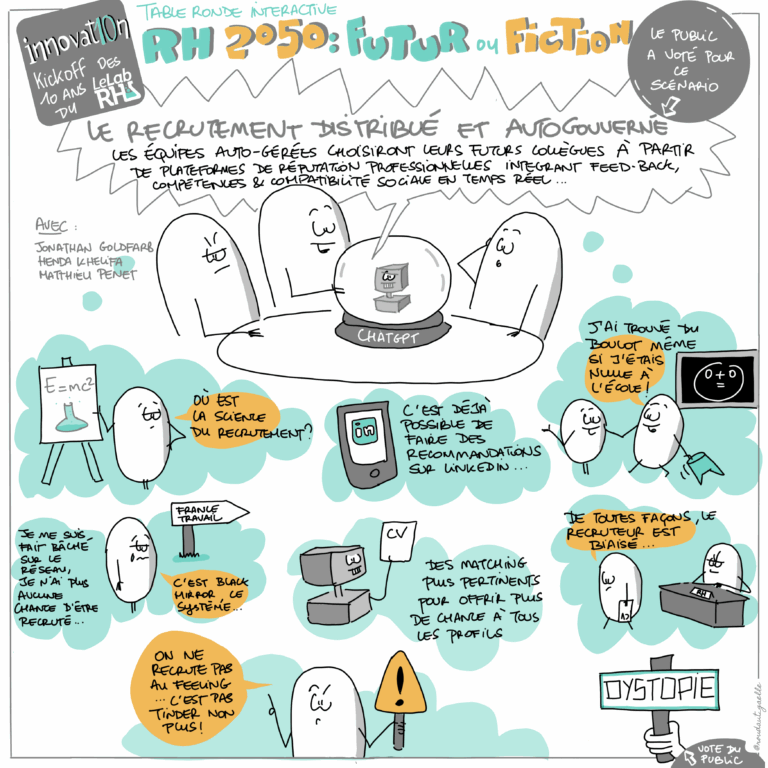 TABLE RONDE INTERACTIVE
RH 2050: FUTUR OU FICTION
innovat1On
KICKOFF DES
10 ANS LeLab
DU RH
LE PUBLIC
A VOTÉ POUR
CE
SCÉNARIO
LE RECRUTEMENT DISTRIBUÉ ET AUTOGOUVERNÉ
LES ÉQUIPES AUTO-GÉRÉES CHOISIRONT LEURS FUTURS COLLÈGUES À PARTIR
DE PLATEFORMES DE RÉPUTATION PROFESSIONNELLES INTEGRANT FEED-BACK,
COMPÉTENCES & COMPATIBILITÉ SOCIALE EN TEMPS RÉEL...
AVEC :
JONATHAN GOLDFARB
HENDA KHELIFA
MATTHIEU PENET
CHATGPT
E=mc²
OÙ EST
LA SCIENCE
DU RECRUTEMENT?
in
C'EST DÉJÀ
POSSIBLE DE
FAIRE DES
RECOMMANDATIONS
SUR LINKEDIN...
J'AI TROUVÉ DU
BOULOT MÊME
SI J'ÉTAIS
NULLE À
L'ÉCOLE!
0+0
=
JE ME SUIS
FAIT BÂCHÉ
SUR LE
RÉSEAU,
JE N'AI PLUS
AUCUNE
CHANCE D'ÊTRE
RECRUTÉ...
FRANCE
TRAVAIL
C'EST BLACK
MIRROR CE
SYSTÈME...
CV
DES MATCHING
PLUS PERTINENTS
POUR OFFRIR PLUS
DE CHANCE À TOUS
LES PROFILS
DE TOUTES FAÇONS, LE
RECRUTEUR EST
BIAISÉ...
RH
ON NE
RECRUTE PAS
AU FEELING
... C'EST PAS
TINDER NON
PLUS!
!
DYSTOPIE
VOTE DU
PUBLIC